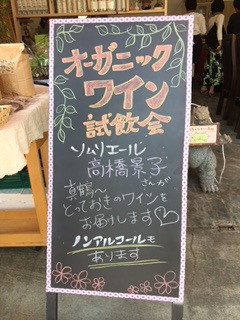 オーガニック
ワイン
試飲会
ソムリエール
高橋景子
さんが
真鶴へ
とっておきのワインを
お届けします♡
ノンアルコールも
あります